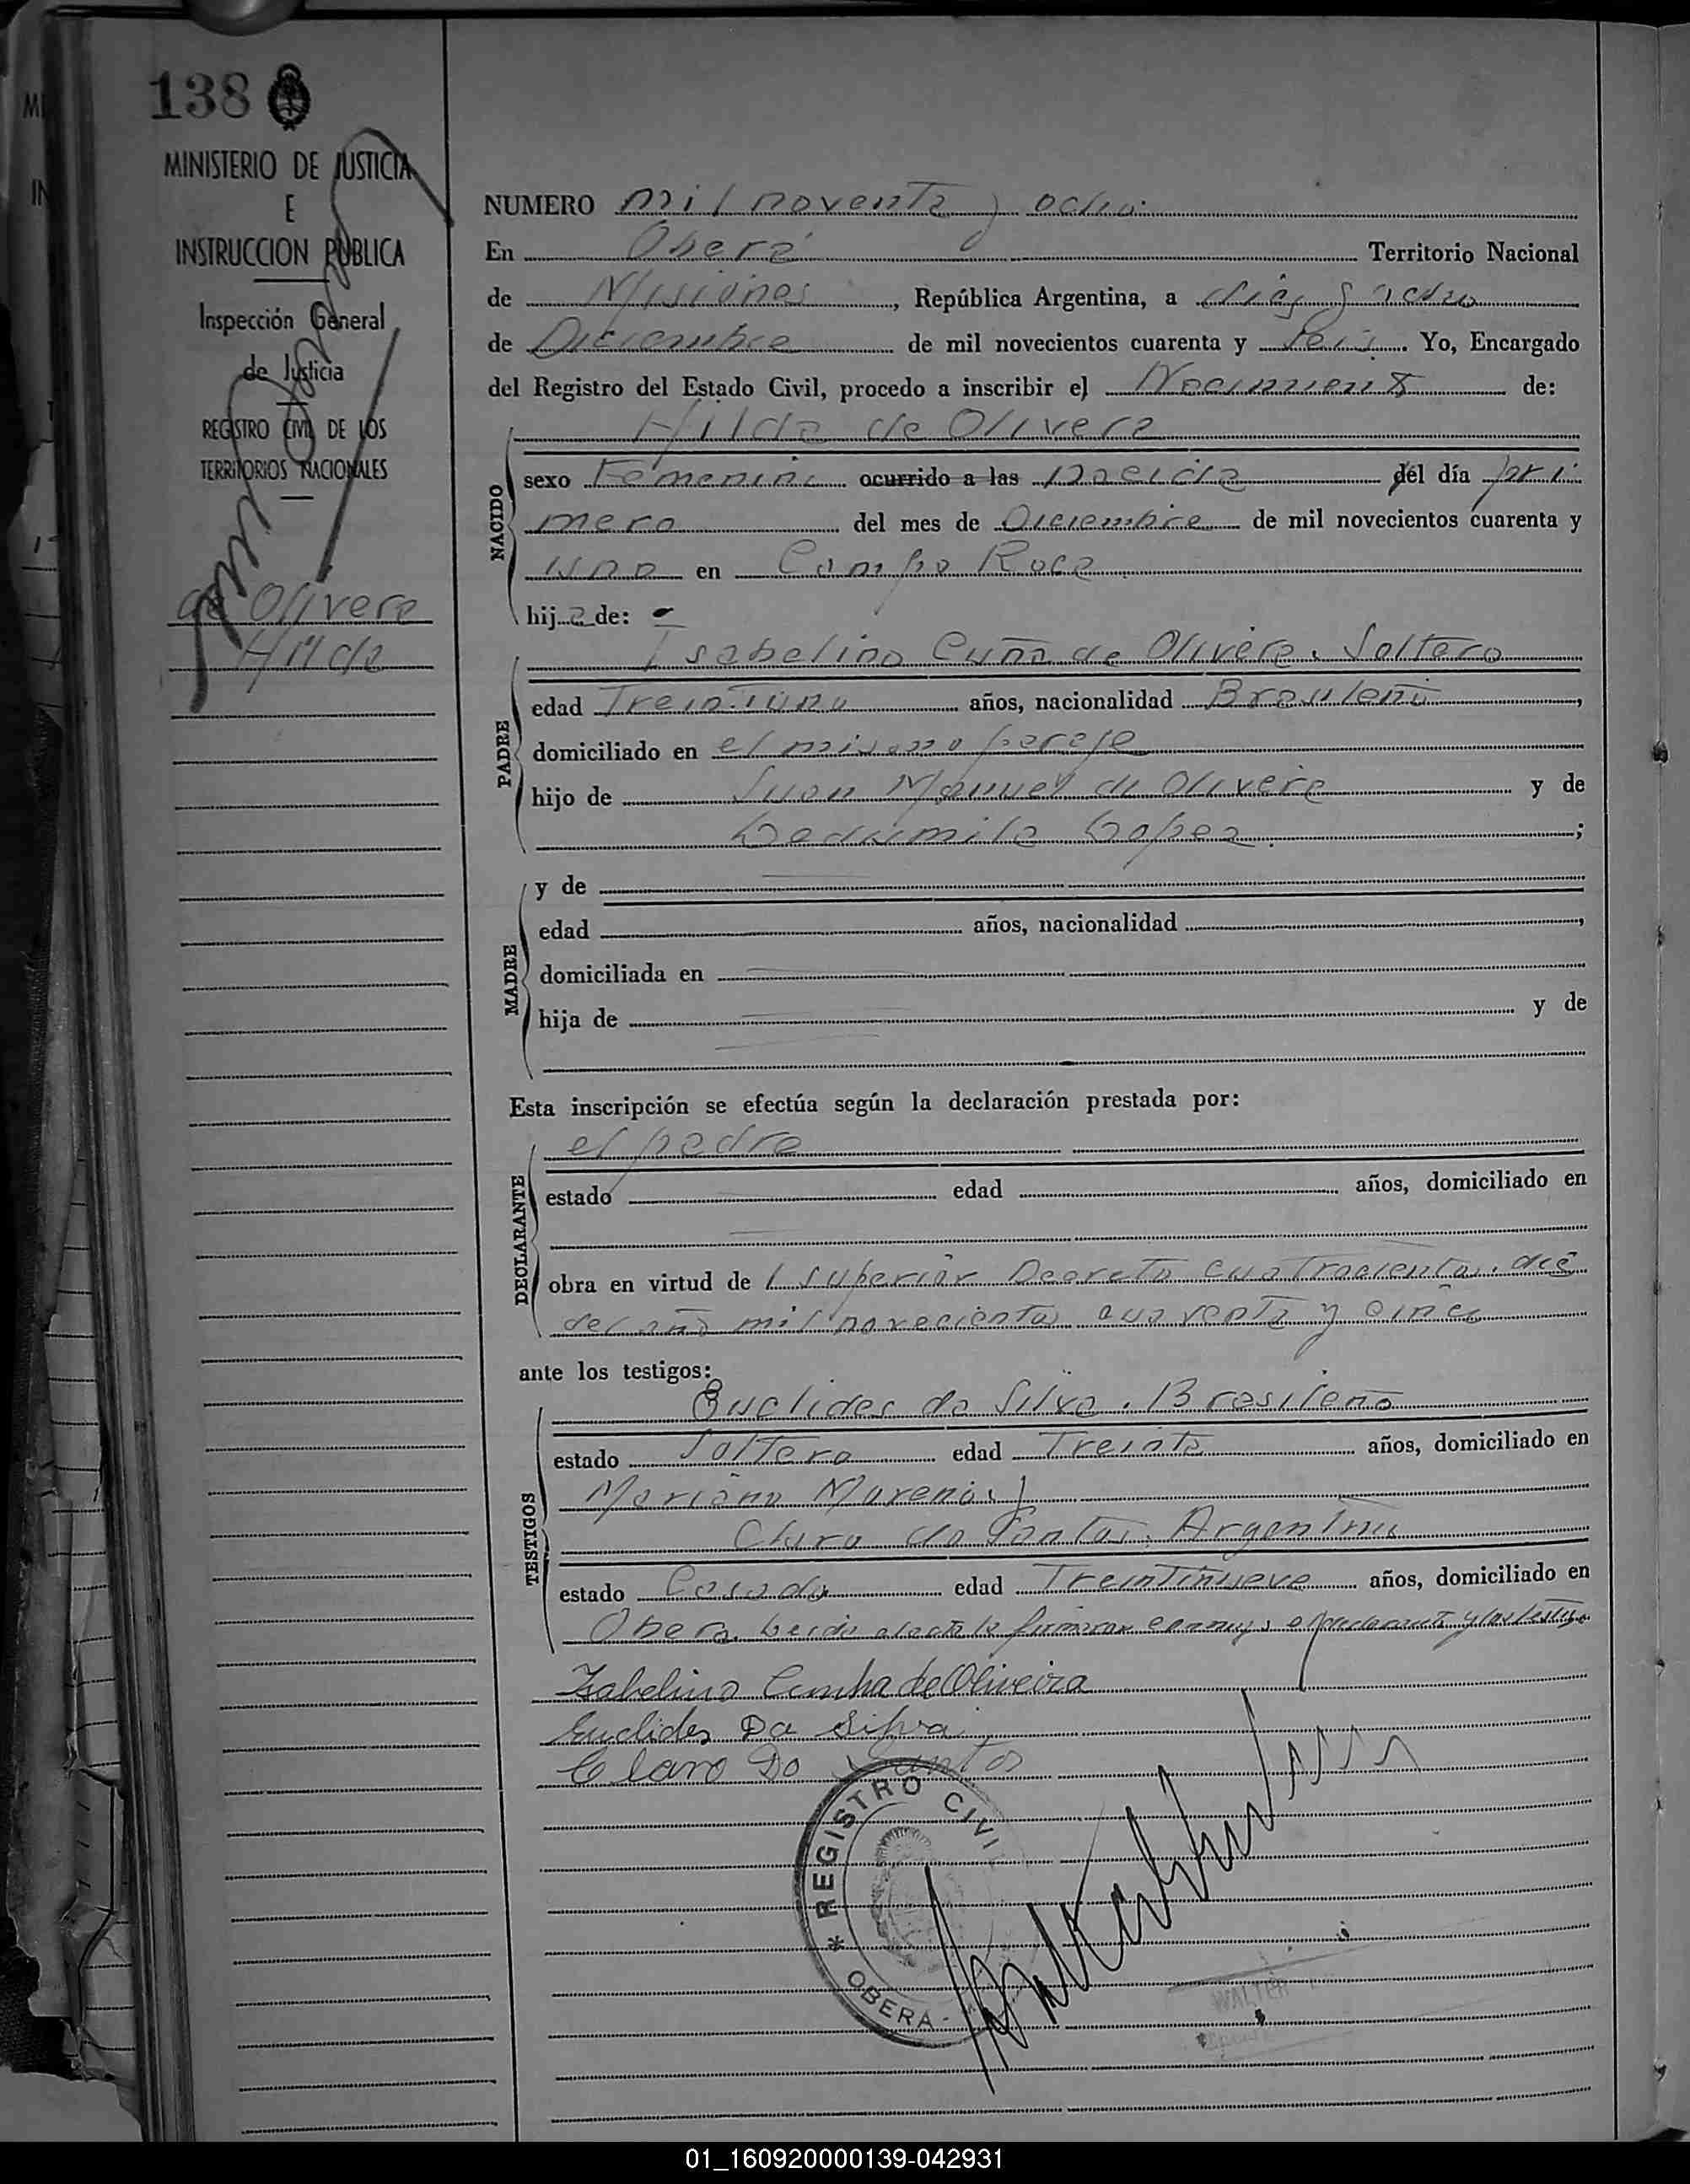 138
MINISTERIO DE JUSTICIA
E
INSTRUCCION PUBLICA
Inspección General
de Justicia
REGISTRO CIVIL DE LOS
TERRITORIOS NACIONALES
de Olivera
Hilda
NUMERO mil noventa y ocho.
En Oberá Territorio Nacional
de Misiones, República Argentina, a diez y ocho
de Diciembre de mil novecientos cuarenta y seis. Yo, Encargado
del Registro del Estado Civil, procedo a inscribir el Nacimiento de:
NACIDO
Hilda de Olivera
sexo Femenino ocurrido a las nacida del día pri
mero del mes de Diciembre de mil novecientos cuarenta y
uno en Campo Roca
hija de:
PADRE
Isabelino Cuña de Olivera. Soltero
edad Treintiuno años, nacionalidad Brasileño,
domiciliado en el mismo paraje
hijo de Juan Manuel de Olivera y de
Ledumila Lopez.;
MADRE
y de
edad años, nacionalidad,
domiciliada en
hija de y de
Esta inscripción se efectúa según la declaración prestada por:
DECLARANTE
el padre
estado edad años, domiciliado en
obra en virtud de l Superior Decreto cuatrocientos. die
del año mil novecientos cuarenta y cinco
ante los testigos:
TESTIGOS
Euclides da Silva. Brasileño
estado Soltero edad Treinta años, domiciliado en
Mariano Moreno. y
Claro do Santos. Argentino
estado Casado edad Treintinueve años, domiciliado en
Obera. Leida el acta la firmaron conmigo el declarante y los testigos
Izabelino Cunha de Oliveira
Euclides Da Silva
Claro Do Santos
* REGISTRO CIVIL
OBERÁ-
WALTER
01_160920000139-042931